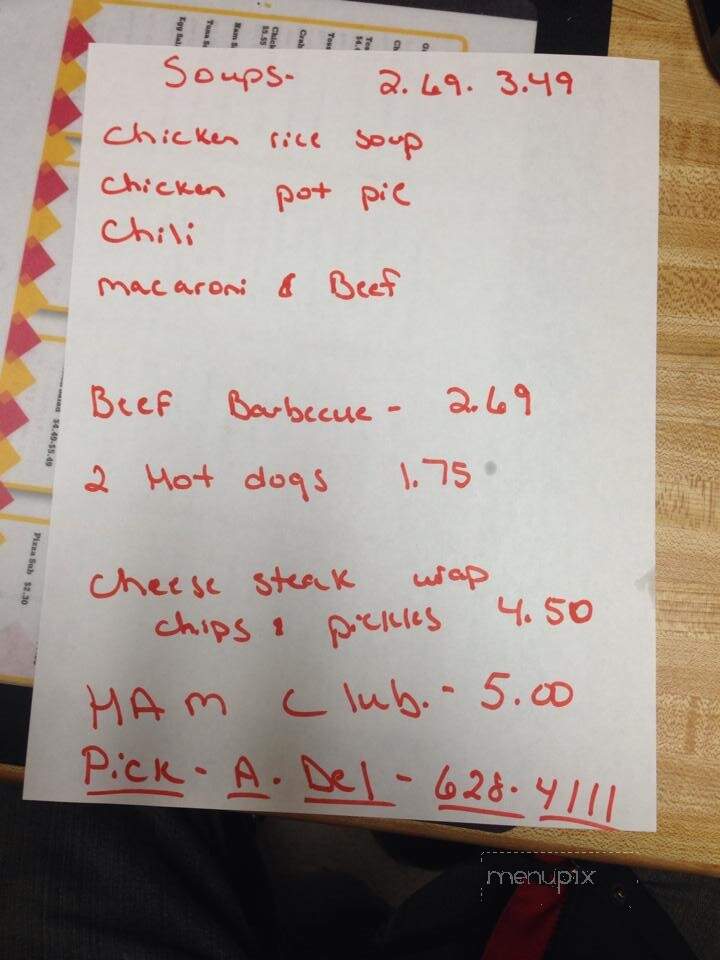 Soups- 2.69. 3.49
Chicken rice soup
Chicken pot pie
Chili
macaroni & Beef
Beef Barbecue - 2.69
2 Hot dogs 1.75
Cheese steak wrap
chips & pickles 4.50
HAm Club. - 5.00
Pick - A. Del - 628. 4111
Pizza Sub $2.30
$4.49-$5.49
$5.55
menupix